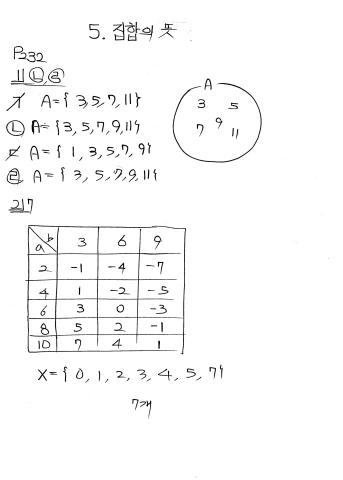 5. 집합의 뜻
P232
1] ㉡, ㉣
ㄱ A={3,5,7,11}
㉡ A={3,5,7,9,11}
ㄷ A={1,3,5,7,9}
㉣ A={3,5,7,9,11}
A
3 5
7 9 11
2] 7
a b 3 6 9
2 -1 -4 -7
4 1 -2 -5
6 3 0 -3
8 5 2 -1
10 7 4 1
X={0,1,2,3,4,5,7}
7개